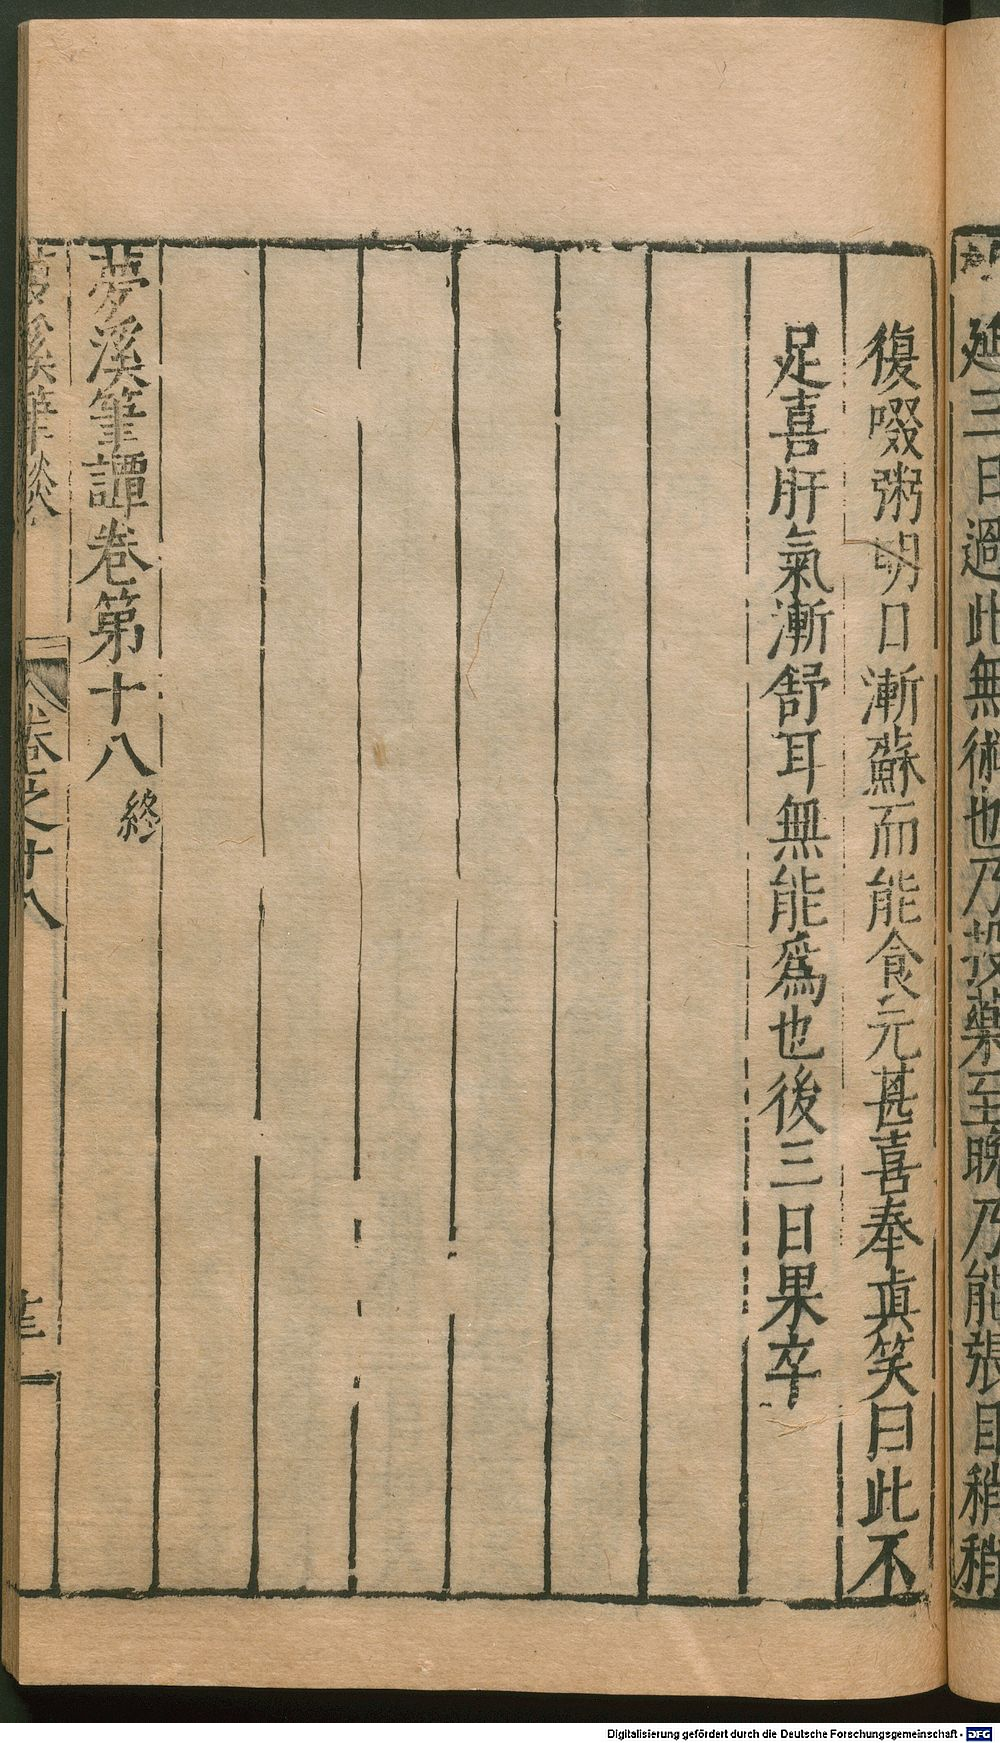 延三日過此無術也乃投藥至晚乃能張目稍稍
復啜粥明日漸蘇而能食元甚喜奉真笑曰此不
足喜肝氣漸舒耳無能為也後三日果卒
夢溪筆譚卷第十八終
夢溪筆談
卷之十八
Digitalisierung gefördert durch die Deutsche Forschungsgemeinschaft - DFG